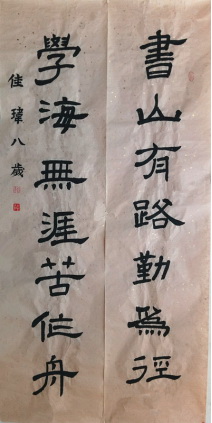 書山有路勤為徑
學海無涯苦作舟
佳瑋八歲